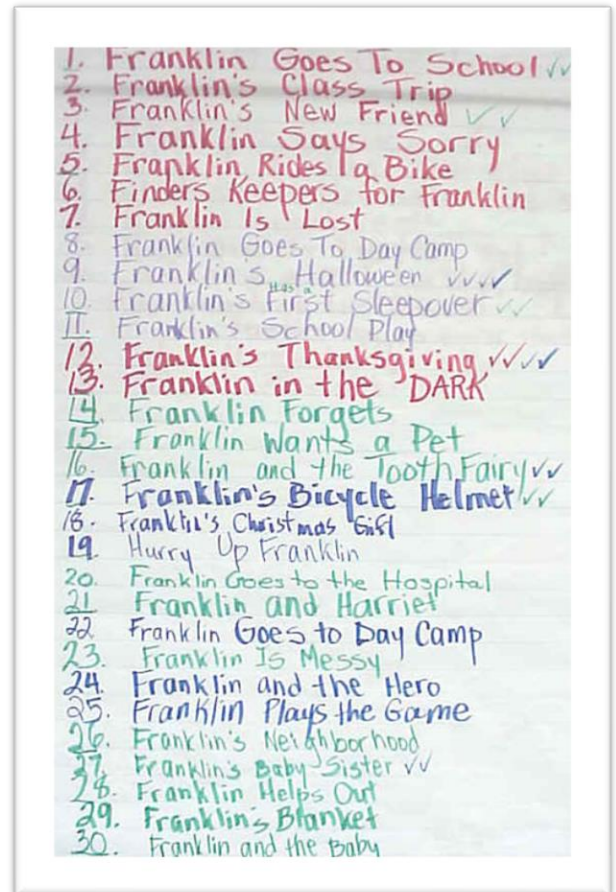 1. Franklin Goes To School ✓✓
2. Franklin's Class Trip
3. Franklin's New Friend ✓ ✓
4. Franklin Says Sorry
5. Franklin Rides a Bike
6. Finders Keepers for Franklin
7. Franklin Is Lost
8. Franklin Goes To Day Camp
9. Franklin's Halloween ✓✓✓✓
Has a
10. Franklin's First Sleepover ✓✓
11. Franklin's School Play
12. Franklin's Thanksgiving ✓✓✓✓
13. Franklin in the DARK
14. Franklin Forgets
15. Franklin Wants a Pet
16. Franklin and the Tooth Fairy ✓✓
17. Franklin's Bicycle Helmet ✓✓
18. Franklin's Christmas Gift
19. Hurry Up Franklin
20. Franklin Goes to the Hospital
21 Franklin and Harriet
22 Franklin Goes to Day Camp
23. Franklin Is Messy
24. Franklin and the Hero
25. Franklin Plays the Game
26. Franklin's Neighborhood
27. Franklin's Baby Sister ✓✓
28. Franklin Helps Out
29. Franklin's Blanket
30. Franklin and the Baby